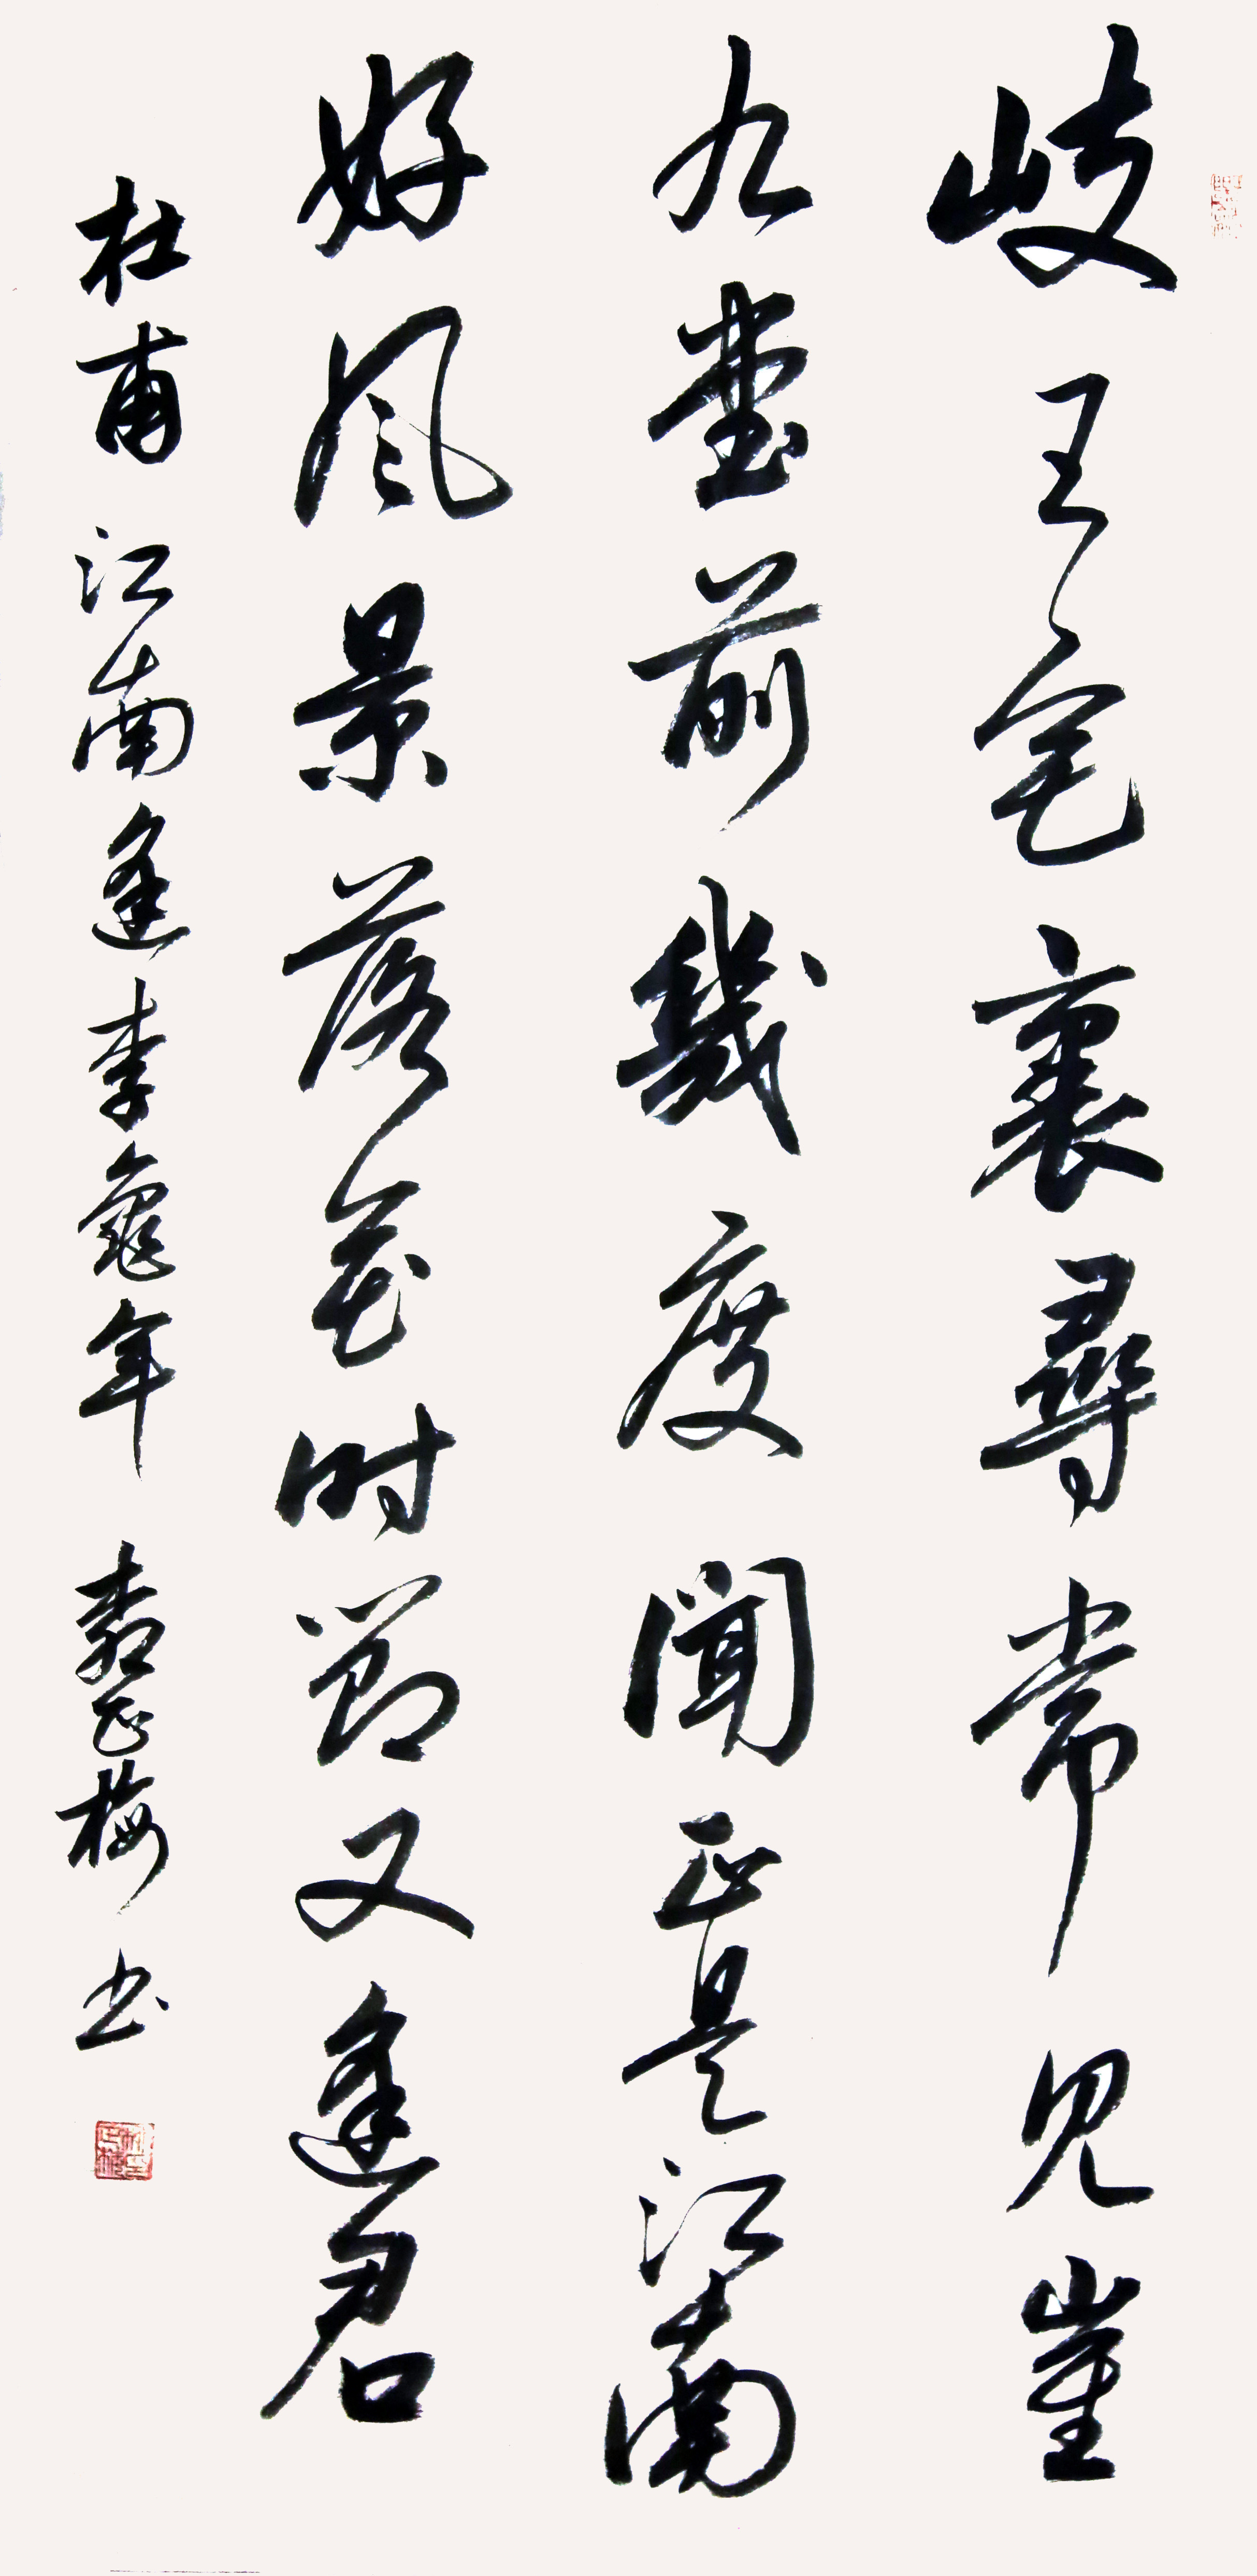 岐王宅裏尋常見崔
九堂前幾度聞正是江南
好風景落花时節又逢君
杜甫 江南逢李龜年 正梅 书